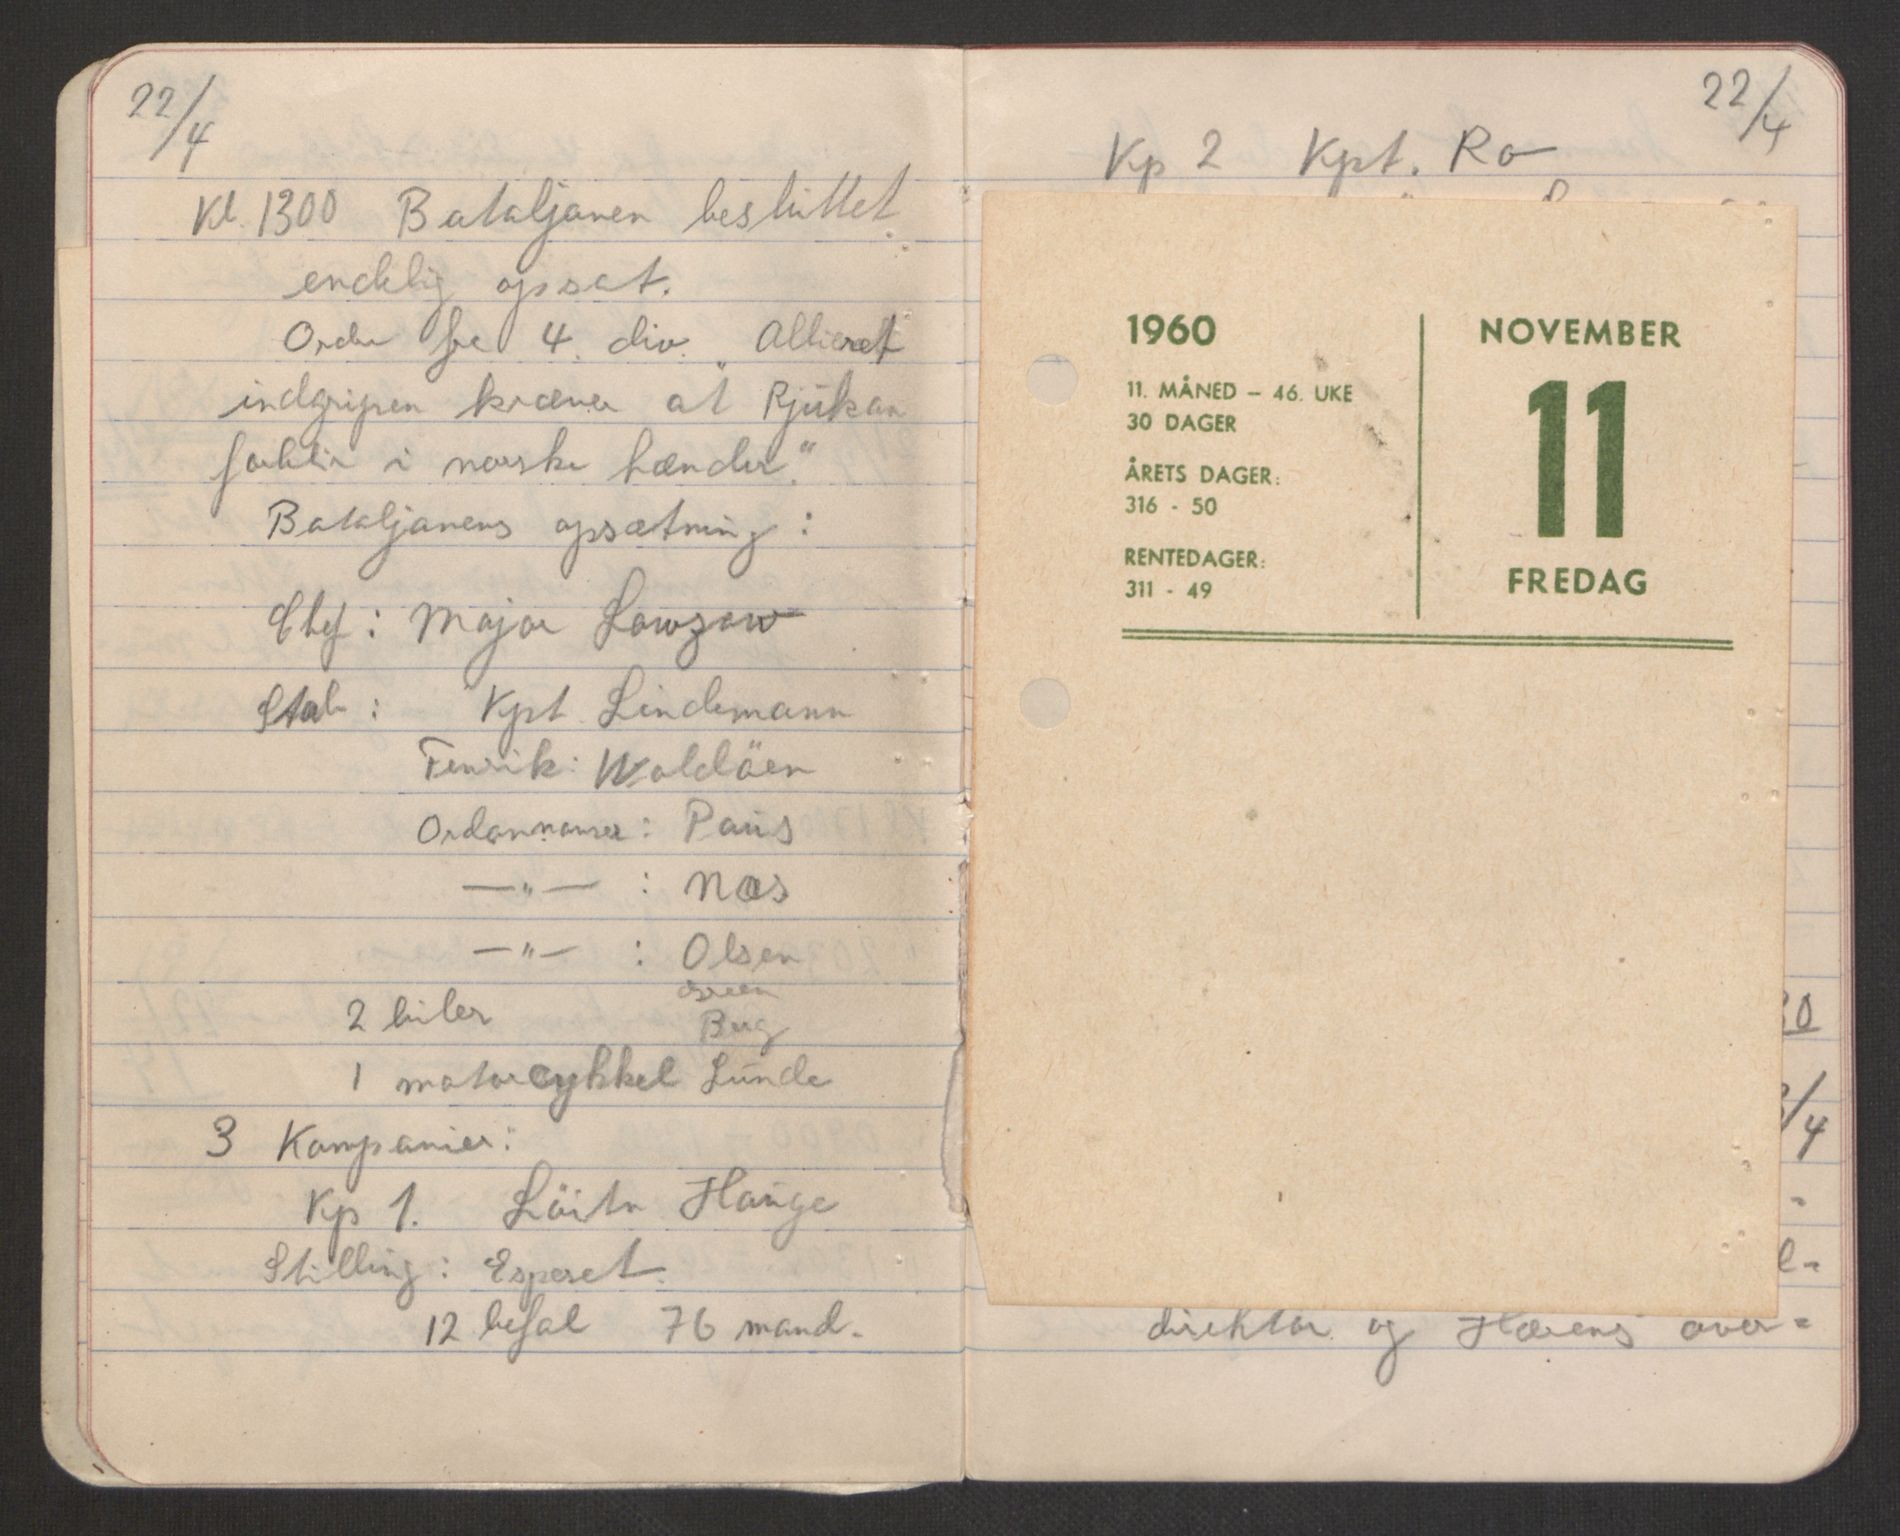 22/4
Kl. 1300 Bataljonen besluttet
endelig opsat.
Ordre fra 4. div. "Alliert
indgripen kræver at Rjukan
forblir i norske hænder."
Bataljonens opsætning:
Chef: Major Lowzow
Stab: Kpt Lindemann
Fenrik: Woldöen
Ordonnanser: Paus
—"— : Næs
—"— : Olsen
2 biler
Berg
1 motorcykkel Lunde
3 Kompanier:
Kp 1. Löitn Hauge
Stilling: Esperet.
12 befal 76 mand.
22/4
Kp 2 Kpt. Ro
1960
11. MÅNED – 46. UKE
30 DAGER
ÅRETS DAGER:
316 - 50
RENTEDAGER:
311 - 49
NOVEMBER
11
FREDAG
/4
direktør og Hærens over=